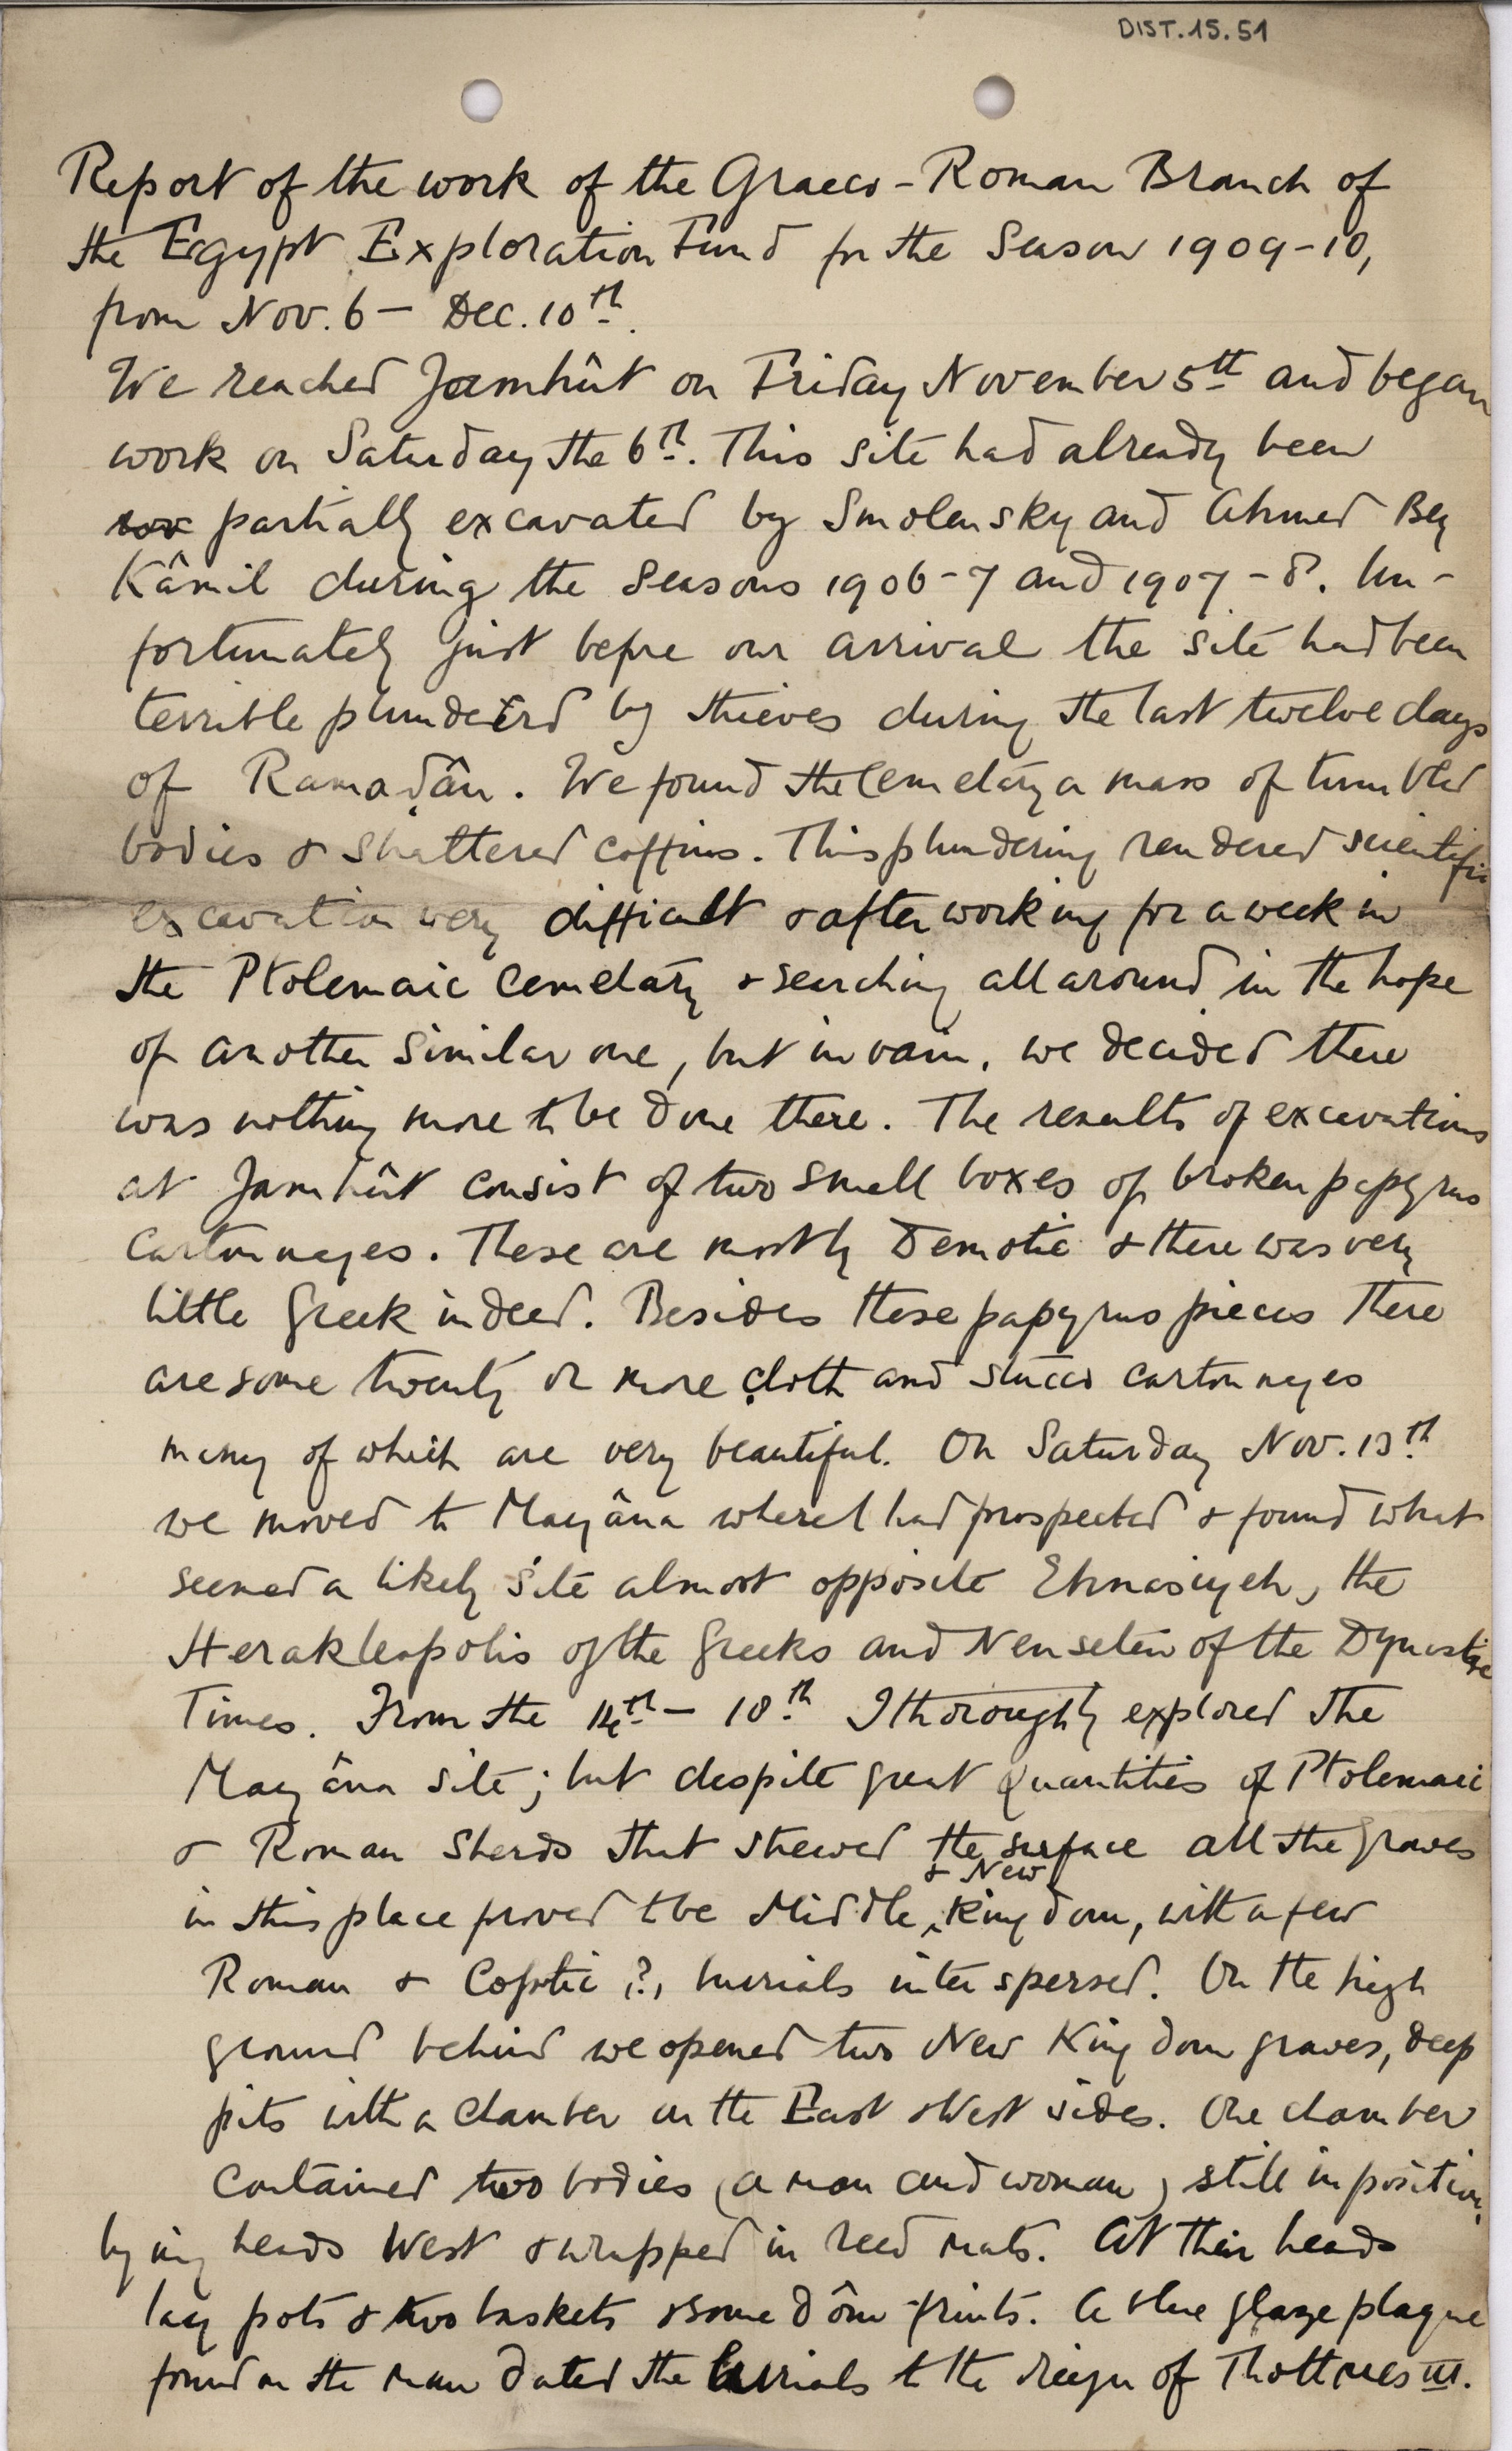 DIST.15.51
Report of the work of the Graeco-Roman Branch of
the Egypt Exploration Fund for the Season 1909-10,
from Nov. 6 - Dec. 10th.
We reached Jamhût on Friday November 5th and began
work on Saturday the 6th. This site had already been
partially excavated by Smolensky and Ahmed Bey
Kâmil during the seasons 1906-7 and 1907-8. Un-
fortunately just before our arrival the site had been
terrible plundered by thieves during the last twelve days
of Ramadân. We found the Cemetary a mass of tumbled
bodies & shattered coffins. This plundering rendered scientific
excavation very difficult & after working for a week in
the Ptolemaic Cemetary & searching all around in the hope
of another similar one, but in vain, we decided there
was nothing more to be done there. The results of excavations
at Jamhût consist of two small boxes of broken papyrus
Cartonnages. These are mostly Demotic & there was very
little Greek indeed. Besides these papyrus pieces there
are some twenty or more cloth and stucco cartonnages
many of which are very beautiful. On Saturday Nov. 13th
we moved to Mayâna where I had prospected & found what
seemed a likely site almost opposite Ehnasiyeh, the
Herakleopolis of the Greeks and Nenseten of the Dynastic
Times. From the 14th - 18th I thoroughly explored the
Mayâna site; but despite great Quantities of Ptolemaic
& Roman Sherds that strewed the surface all the graves
in this place proved to be Middle & New Kingdom, with a few
Roman & Coptic (?) burials interspersed. On the high
ground behind we opened two New Kingdom graves, deep
pits with a chamber on the East & West sides. One chamber
contained two bodies (a man and woman) still in position,
lying heads West & wrapped in reed mats. At their heads
lay pots & two baskets & some dôm-fruits. A blue glaze plaque
found on the man dated the burials to the reign of Thottmes III.